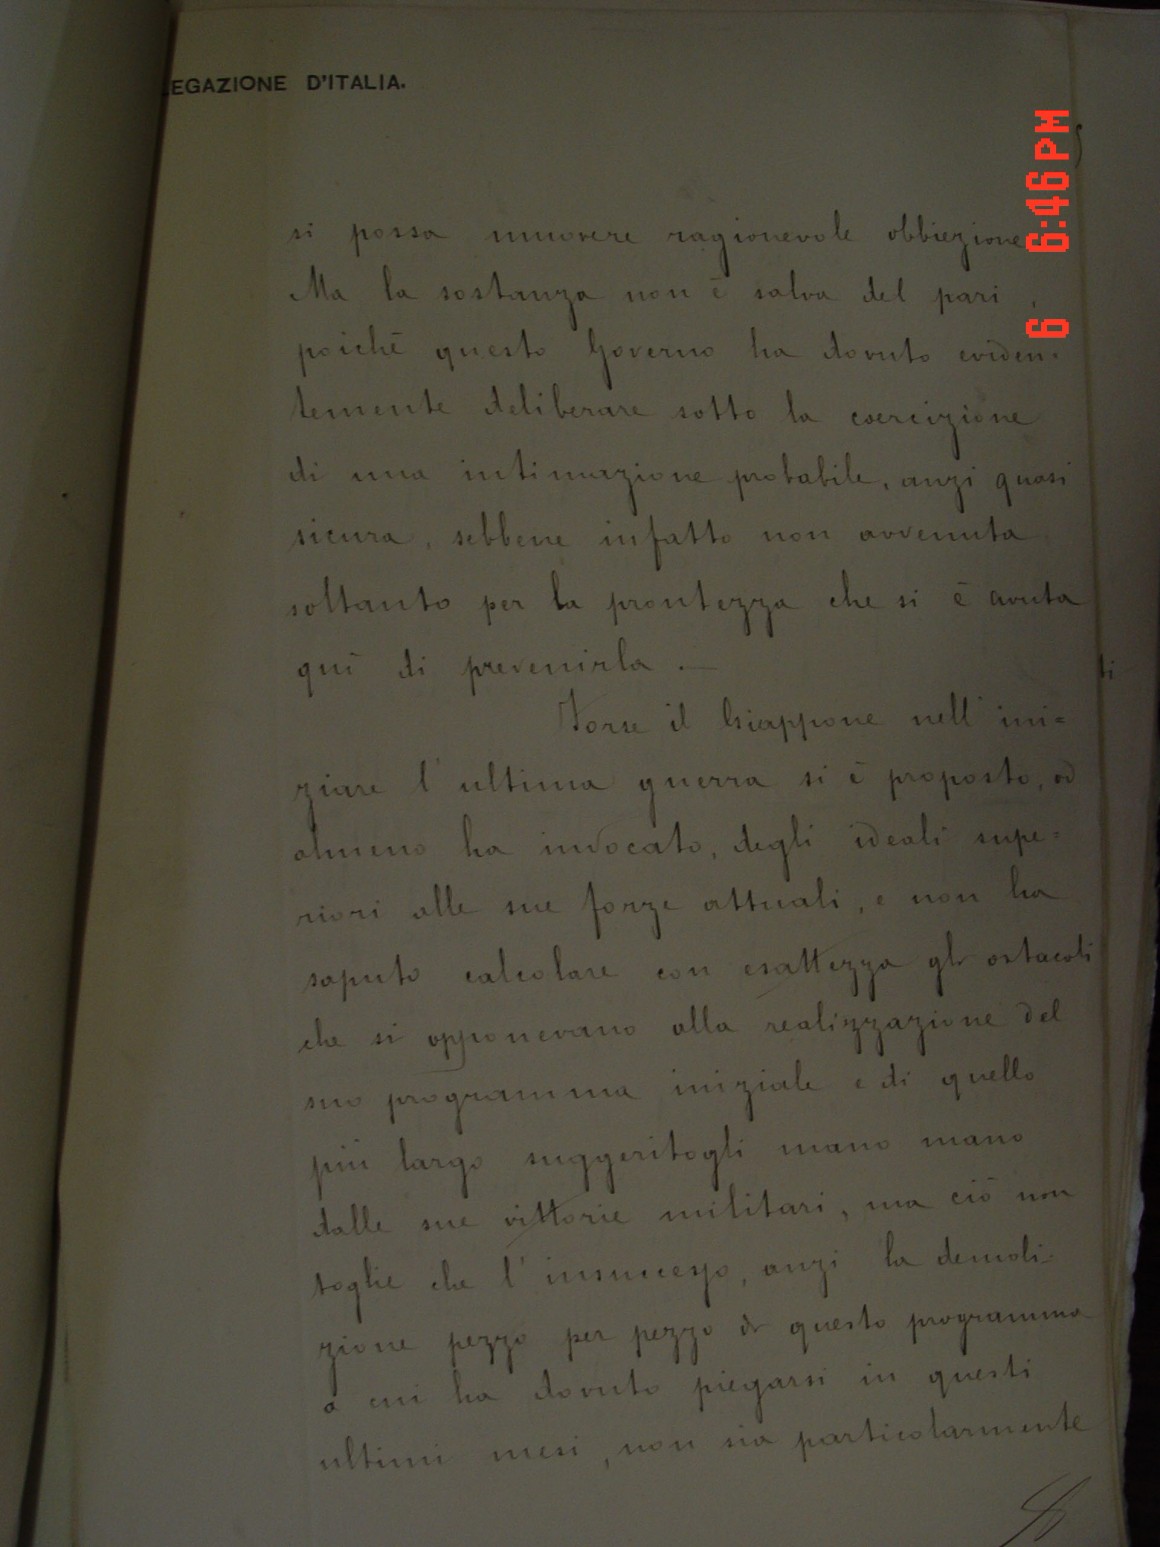 LEGAZIONE D'ITALIA.
si possa muovere ragionevole obbiezione
Ma la sostanza non è salva del pari,
poichè questo Governo ha dovuto eviden=
temente deliberare sotto la coercizione
di una intimazione probabile, anzi quasi
sicura, sebbene infatto non avvenuta
soltanto per la prontezza che si è avuta
quì di prevenirla. —
Forse il Giappone nell'ini=
ziare l'ultima guerra si è proposto, od
almeno ha invocato, degli ideali supe=
riori alle sue forze attuali, e non ha
saputo calcolare con esattezza gli ostacoli
che si opponevano alla realizzazione del
suo programma iniziale e di quello
più largo suggeritogli mano mano
dalle sue vittorie militari, ma ciò non
toglie che l'insuccesso, anzi la demoli=
zione pezzo per pezzo di questo programma
a cui ha dovuto piegarsi in questi
ultimi mesi, non sia particolarmente
ti
6 6:46 PM